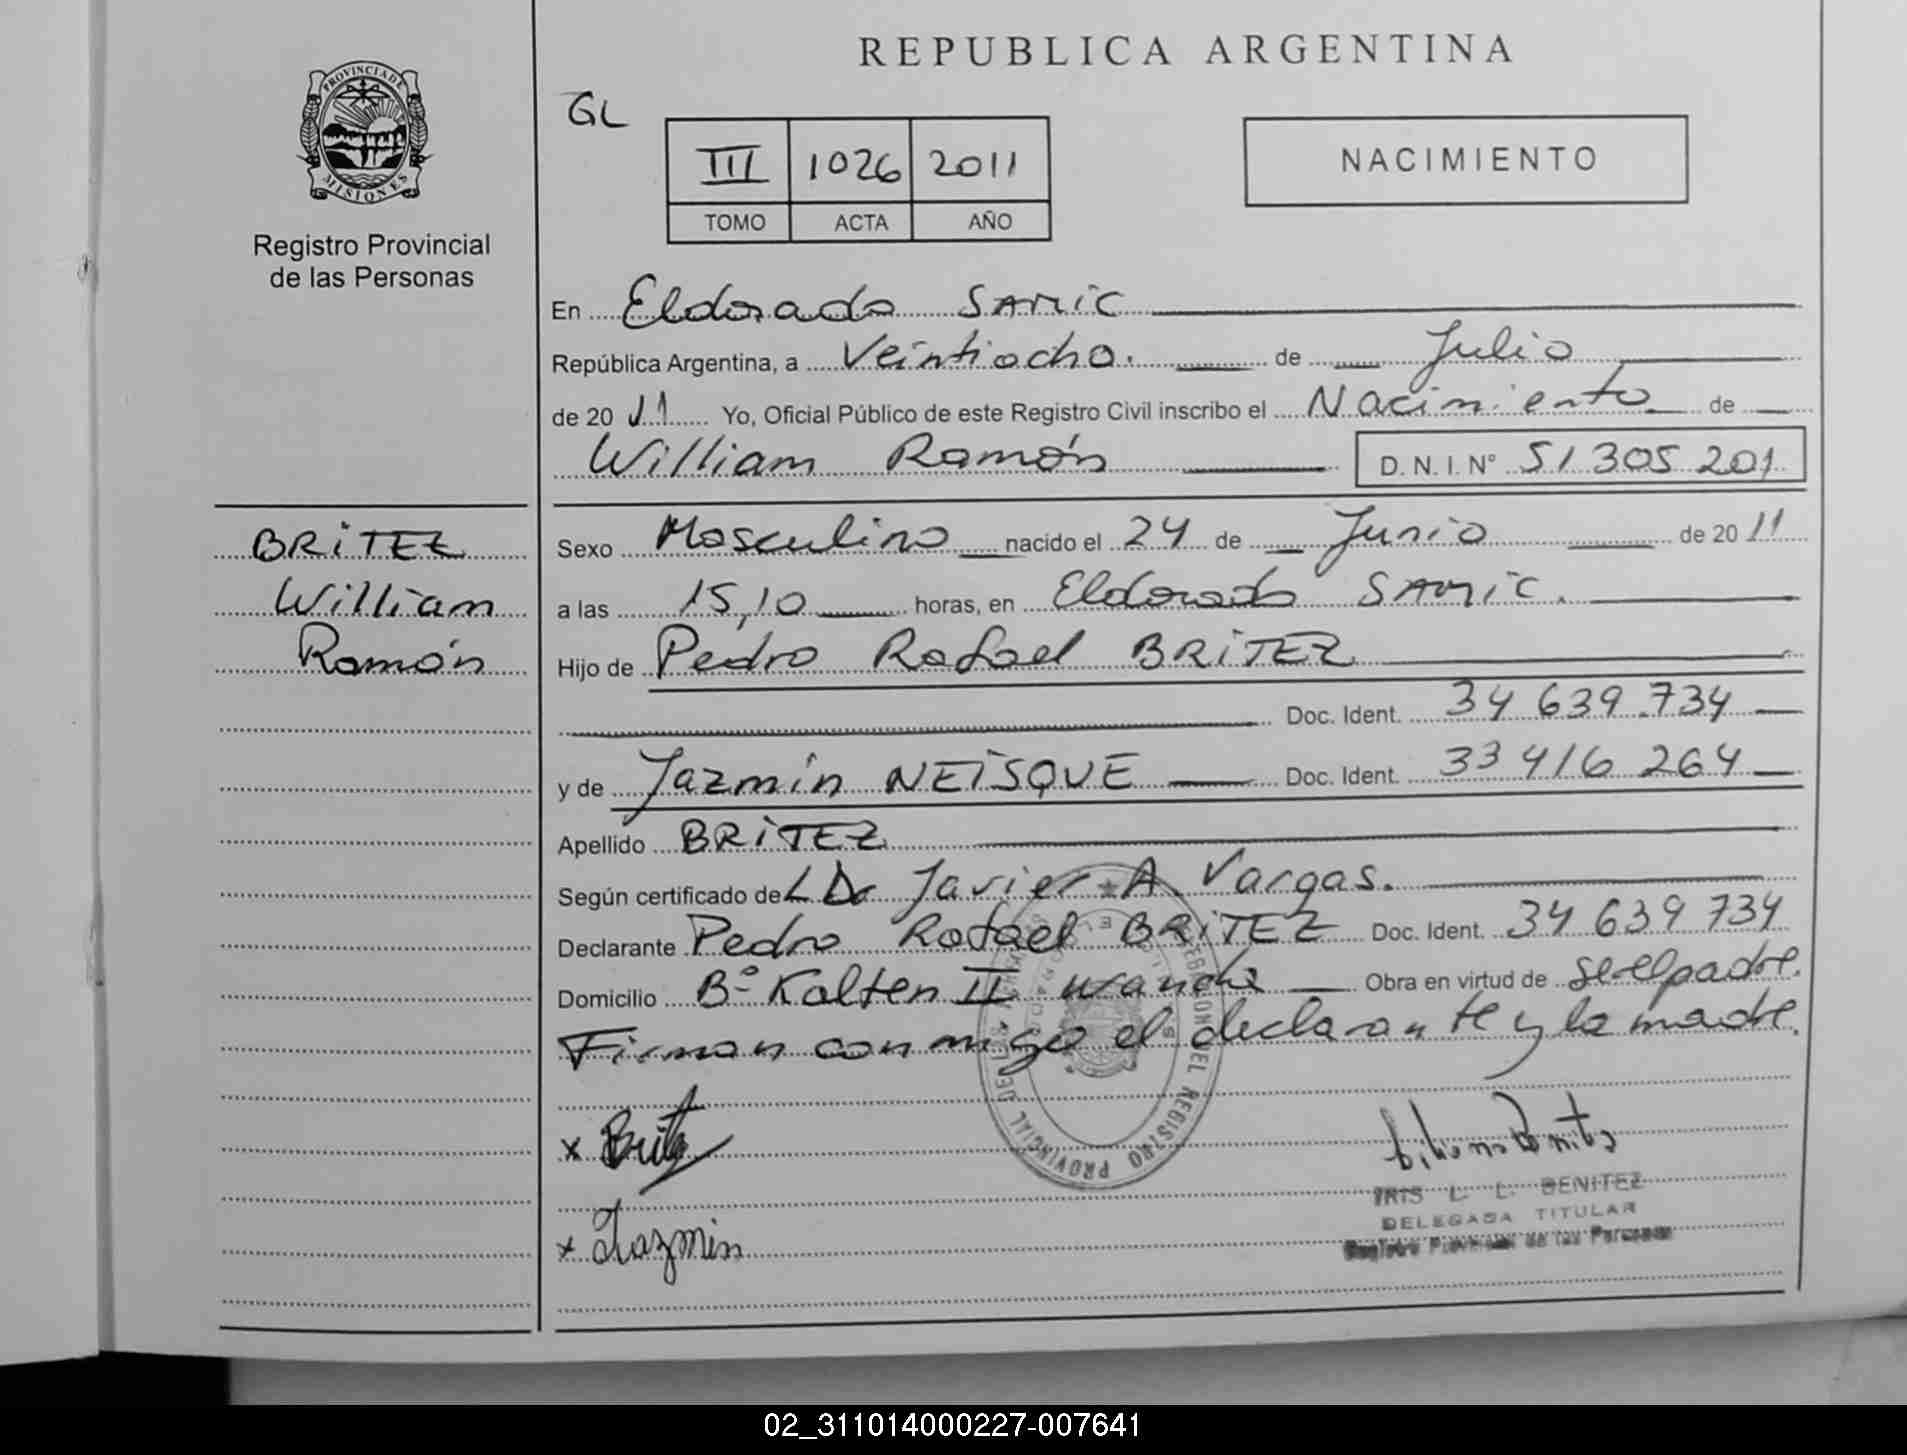 REPUBLICA ARGENTINA
PROVINCIA DE
MISIONES
Registro Provincial
de las Personas
GL
III 1026 2011
TOMO ACTA AÑO
NACIMIENTO
En Eldorado SAMIC
República Argentina, a Veintiocho. de Julio
de 20 11 Yo, Oficial Público de este Registro Civil inscribo el Nacimiento de
William Ramón D.N.I. Nº 51 305 201
BRITEZ
William
Ramón
Sexo Masculino nacido el 24 de Junio de 20 11
a las 15,10 horas, en Eldorado SAMIC.
Hijo de Pedro Rafael BRITEZ
Doc. Ident. 34 639 734
y de Jazmín NEISQUE Doc. Ident. 33 416 264
Apellido BRITEZ
Según certificado de L Dr Javier A. Vargas.
Declarante Pedro Rafael BRITEZ Doc. Ident. 34 639 734
Domicilio Bº Kalten II wanda Obra en virtud de ser el padre.
Firman con migo el declarante y la madre.
x Britez
x Jazmin
IRIS L. L. BENITEZ
DELEGADA TITULAR
Registro Provincial de las Personas
DELEGACION DEL REGISTRO PROVINCIAL DE LAS PERSONAS
02_311014000227-007641